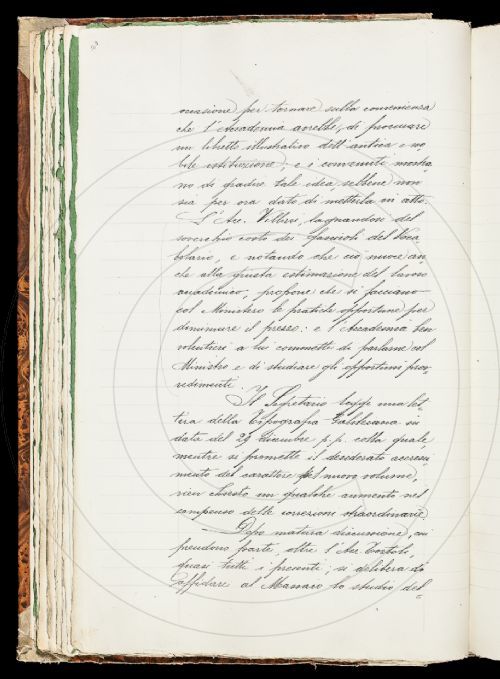 occasione per tornare sulla convenienza
che l'Accademia avrebbe, di procurare
un libretto illustrativo dell'antica e no
bile istituzione; e i convenuti mostra
no di gradire tale idea, sebbene non
sia per ora dato di metterla in atto.
L'Acc. Villari, lagnandosi del
soverchio costo dei fascicoli del Voca
bolario, e notando che ciò nuoce an
che alla giusta estimazione del lavoro
accademico, propone che si facciano
col Ministero le pratiche opportune per
diminuire il prezzo: e l'Accademia ben
volentieri a lui commette di parlarne col
Ministro e di studiare gli opportuni prov-
vedimenti.
Il Segretario legge una let-
tera della Tipografia Galileiana in
data del 29 dicembre p.p. colla quale,
mentre si promette il desiderato accresci
mento del carattere pel nuovo volume,
vien chiesto un qualche aumento nel
compenso delle correzioni straordinarie.
— Dopo matura discussione, cui
prendono parte, oltre l'Acc. Tortoli,
quasi tutti i presenti, si delibera di
affidare al Massaro lo studio del-